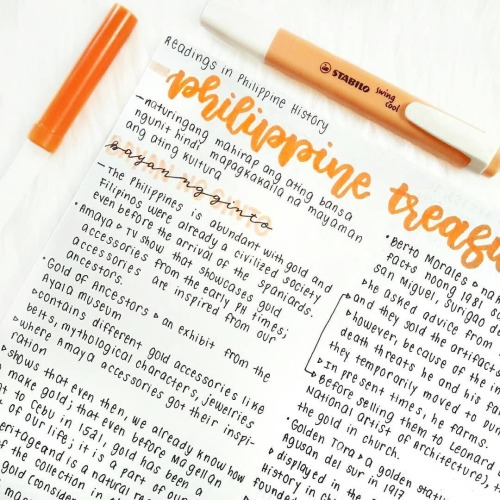 STABILO swing cool
Readings in Philippine History
philippine treasu
– naturingang mahirap ang ating bansa
ngunit hindi mapagkakaila na mayaman
ang ating kultura
BAYAN NG GINTO
bayan ng ginto
– The Philippines is abundant with gold and
Filipinos were already a civilized society
even before the arrival of the Spaniards.
• Amaya ▹ TV show that showcases gold
accessories from the early PH times;
accessories are inspired from our
ancestors.
• Gold of Ancestors ▹ an exhibit from the
Ayala museum
▹ contains different gold accessories like
belts, mythological characters, jewelries
▹ where Amaya accessories got their inspi-
ration
▹ shows that even then, we already know how
make gold; that even before Magellan
t to Cebu in 1521, gold has been a
of our life; it is a part of our
eritage and is a natural re
of the collection in
gold (consider
man
• Berto Morales ▹ na
facts noong 1981 sa
San Miguel, Surigao d
▹ he asked advice from
and they sold the artifacts
▹ however, because of the in
death threats he and his fa
they temporarily moved to
▹ In present times, he farms.
▹ Before selling them to Leonard
National artist of Architecture),
the gold in church.
• Golden Tara ▹ a golden stat
Agusan del sur in 19
▹ displayed in the
History in
founde